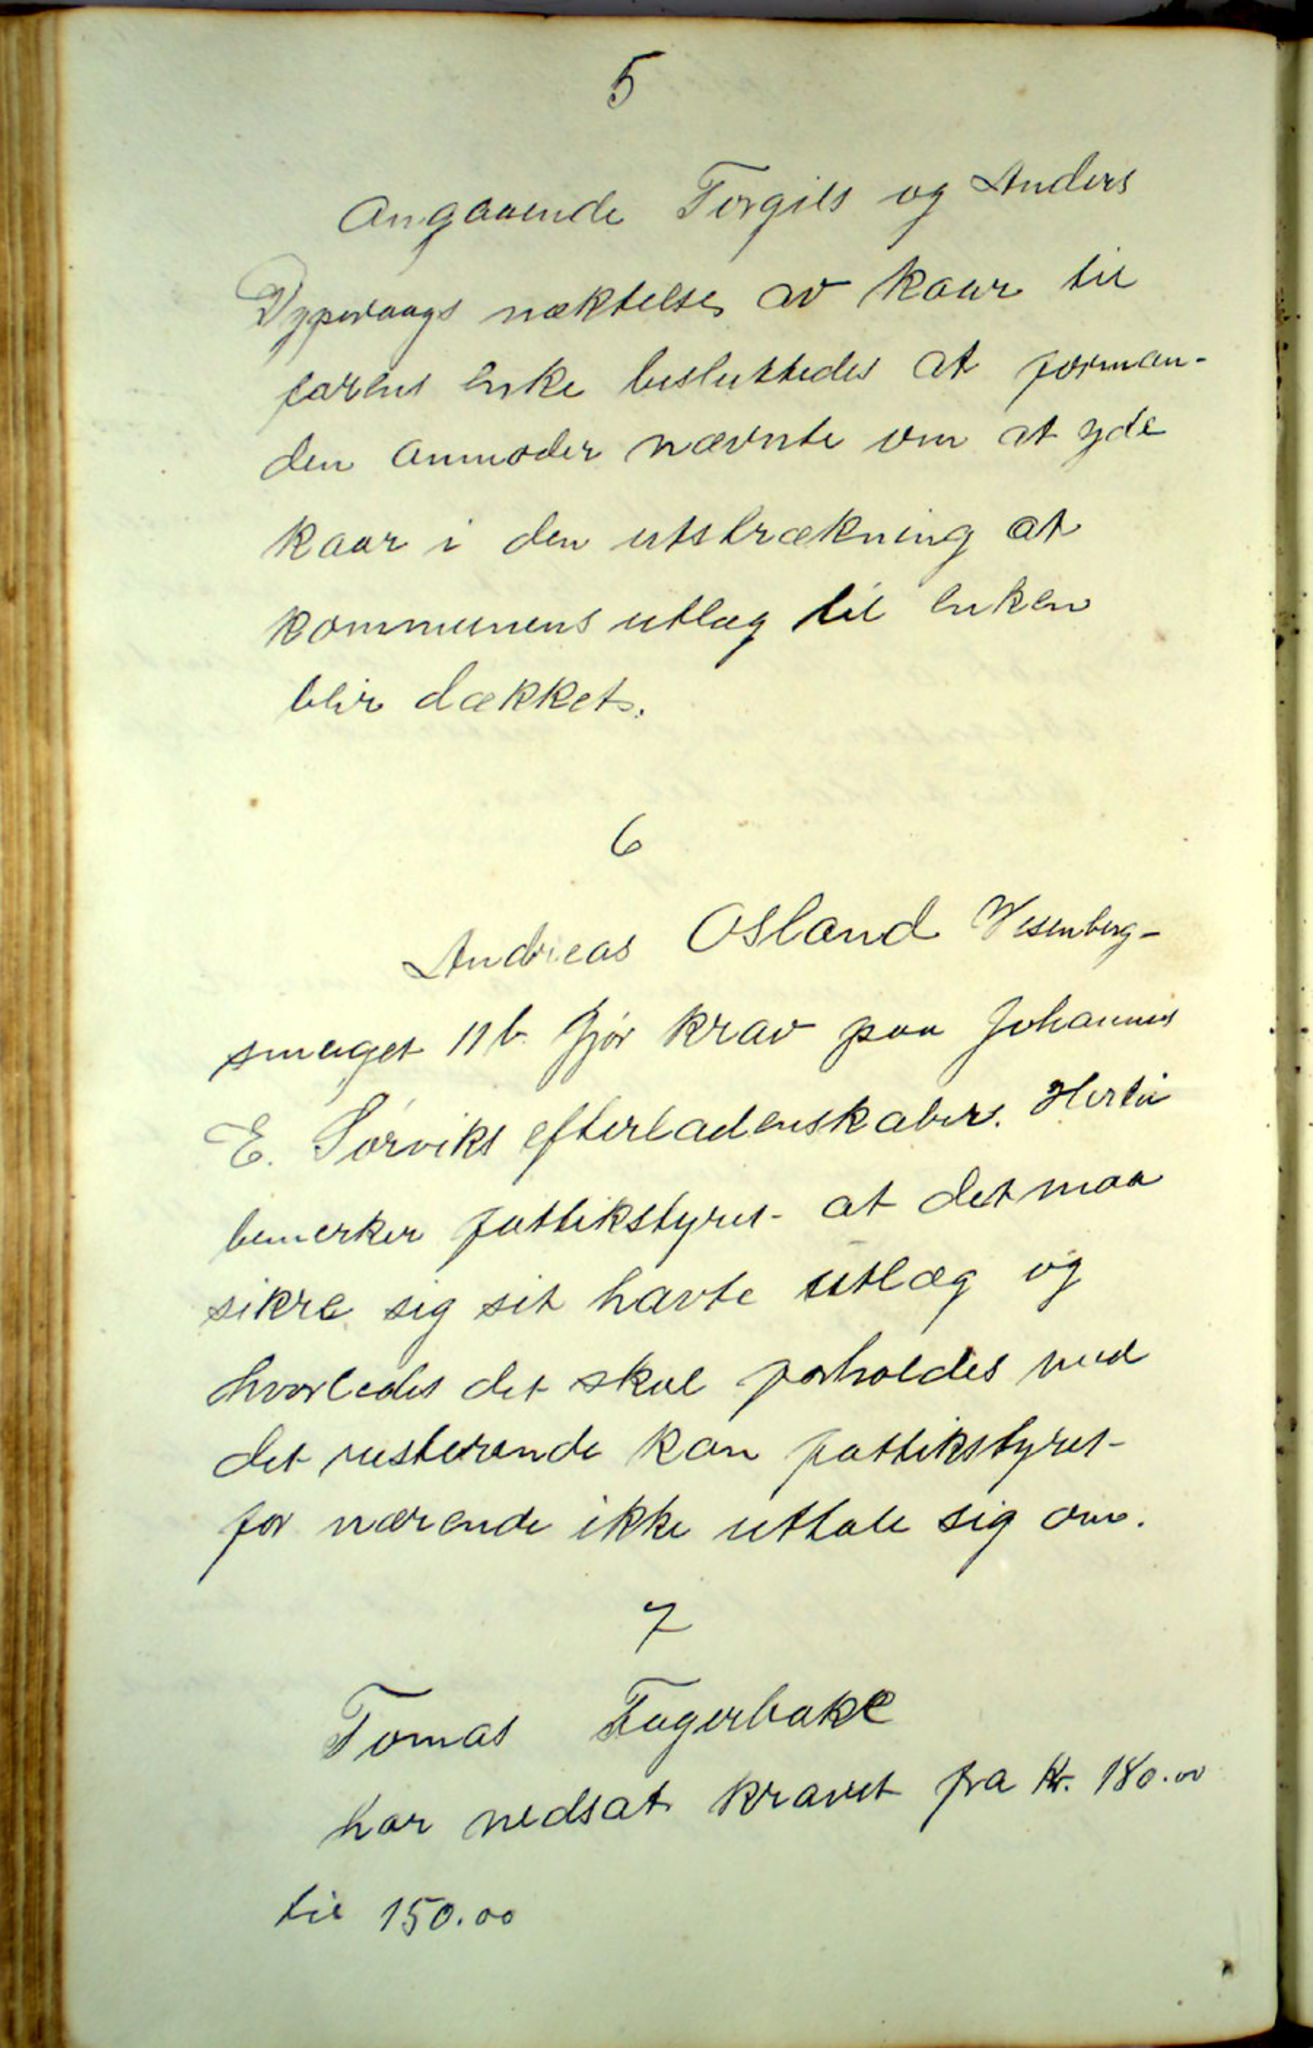 5
Angaaende Torgils og Anders
Dypevaags næktelse av kaar til
farens enke besluttedes at forman-
den anmoder nævnte om at yde
kaar i den utstrækning at
kommunens utlæg til enken
blir dækket.
6
Andreas Osland Wesenberg-
smuget 11 b. gjør krav paa Johannes
E. Sørviks efterladenskaber. Hertil
bemerker fattikstyret at det maa
sikre sig sit havte utlæg og
hvorledes det skal forholdes med
det resterende kan fattikstyret
for nærende ikke uttale sig om.
7
Tomas Fagerbake
har nedsat kravet fra Kr. 180.00
til 150.00